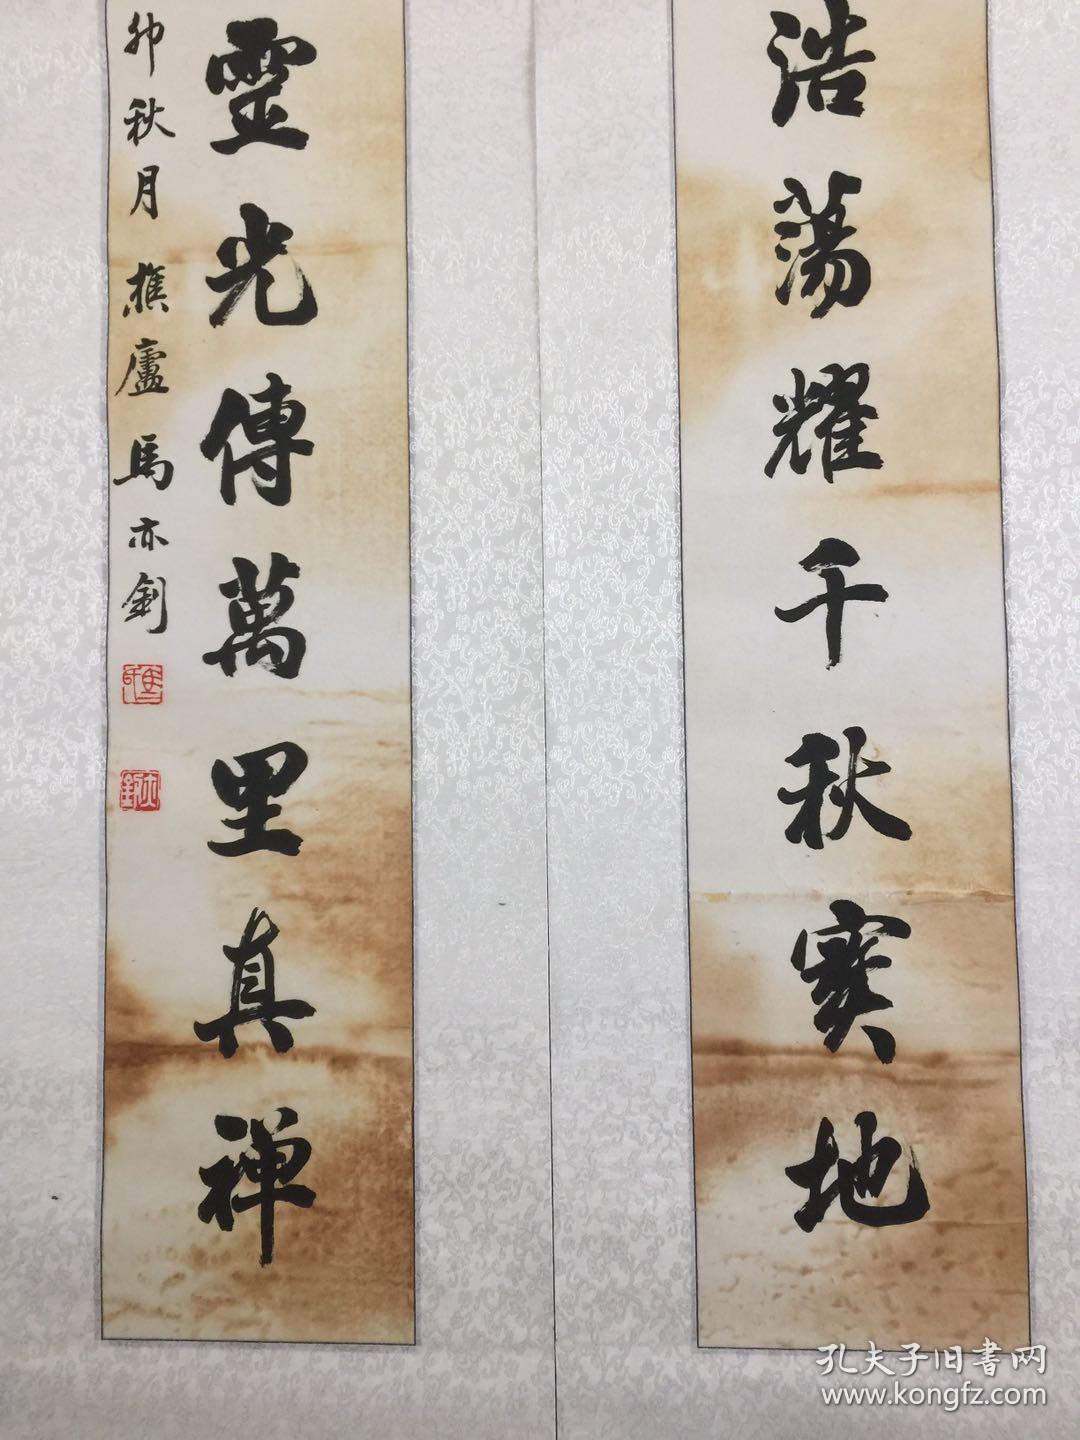 浩蕩耀千秋寳地
靈光傳萬里真禅
卯秋月樵廬馬亦釗
孔夫子旧書网
www.kongfz.com